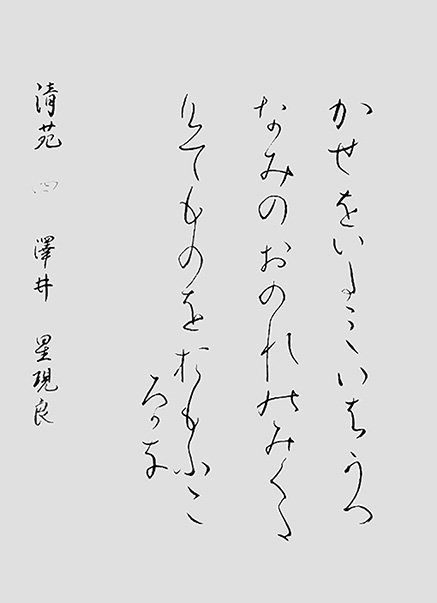 かせをいたみいはうつ
なみのおのれのみくた
けてものをおもふこ
ろかな
清苑 四 澤井 星